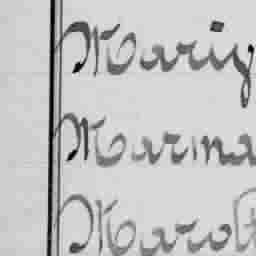 Mariy
Marma
Marolt